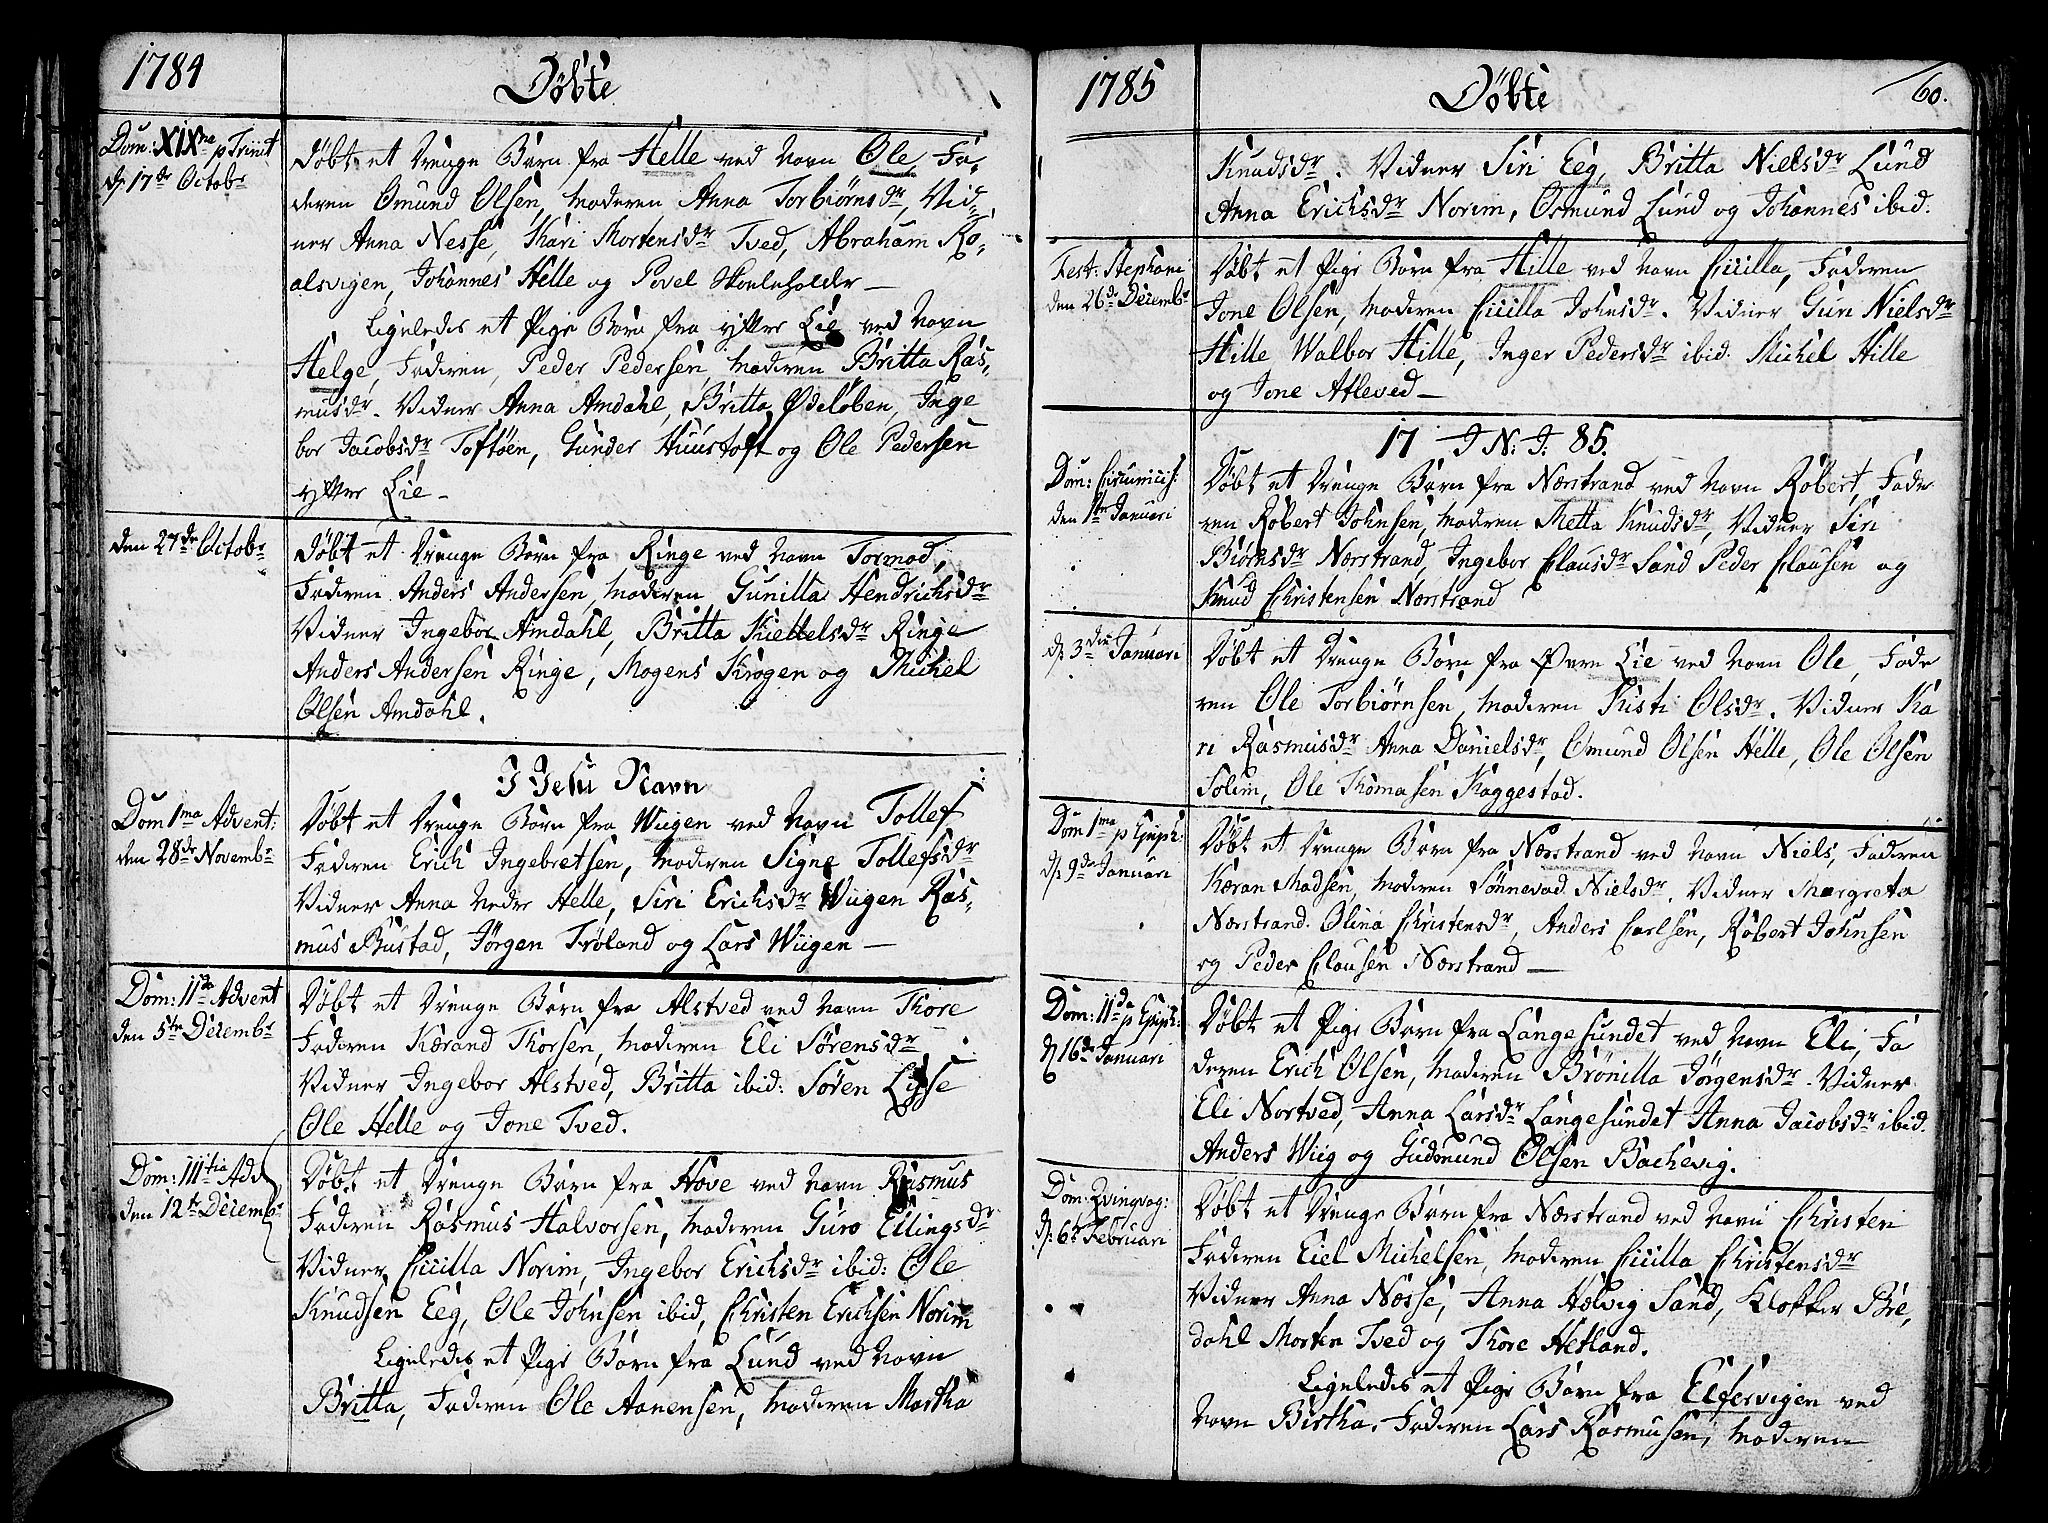 1784
Döbte
Dom: XIXne p Trinit
d: 17de Octobr
Döbt et Drenge Barn fra Helle ved Navn Ole, Fa-
deren Omund Olsen, Moderen Anna Torbiörnsdr, Vid-
ner Anna Nesse, Kari Mortensdr Tved, Abraham Ro-
alsvigen, Johannes Helle og Povel Skoleholder—
Ligeledes et Pige Barn fra yttre Lie ved Navn
Helge, Faderen, Peder Pedersen, Moderen Britta Ras-
musdr. Vidner Anna Amdahl, Britta Ødeloben, Inge
bor Jacobsdr Toftöen, Gunder Huustoft og Ole Pedersen
yttre Lie-
den 27de Octobr
Döbt et Drenge Barn fra Ringe ved Navn Tormod,
Faderen Anders Andersen, Moderen Gunilla Hendrichsdr
Vidner Ingebor Amdahl, Britta Kiettelsdr Ringe
Anders Andersen Ringe, Mogens Krogen og Michel
Olsen Amdahl.
I Jesu Navn
Dom 1ma Advent:
den 28de Novembr
Döbt et Drenge Barn fra Wiigen ved Navn Tollef
Faderen Erich Ingebretsen, Moderen Signe Tollefsdr
Vidner Anna Nedre Helle, Siri Erichsdr Wiigen Ras-
mus Bustad, Jörgen Fröland og Lars Wiigen—
Dom: IIda Advent
den 5te Decembr
Döbt et Drenge Barn fra Alstved ved Navn Thore
Faderen Kærand Thorsen, Moderen Eli Sörensdr
Vidner Ingebor Alstved, Britta ibid: Sören Lysse
Ole Helle og Jone Tved.
Dom: IIItia Adv
den 12te Decembr
Döbt et Drenge Barn fra Hove ved Navn Rasmus
Faderen Rasmus Halvorsen, Moderen Guro Ellingsdr
Vidner Cicilla Norim, Ingebor Erichsdr ibid: Ole
Knudsen Eeg, Ole Johnsen ibid, Christen Erichsen Norim
Ligeledes et Pige Barn fra Lund ved Navn
Britta, Faderen Ole Aanensen, Moderen Martha
1785
Döbte
60.
Knudsdr. Vidner Siri Eeg, Britta Nielsdr Lund
Anna Erichsdr Norim, Osmund Lund og Johannes ibid.
Fest: Stephani
den 26de Decembr
Döbt et Pige Barn fra Hille ved Navn Cicilla, Faderen
Jone Olsen, Moderen Cicilla Johnsdr. Vidner Guri Nielsdr
Hille Walbor Hille, Inger Pedersdr ibid. Michel Hille
og Jone Atleved—
17 I N: J: 85.
Dom: Circumcis:
den 1te Januari
Döbt et Drenge Barn fra Nærstrand ved Navn Robert, Fade
ren Robert Johnsen, Moderen Metta Knudsdr, Vidner Siri
Biörnsdr Nærstrand, Ingebor Clausdr Sand Peder Clausen og
Knud Christensen Nærstrand
d: 3die Januari
Döbt et Drenge Barn fra Øvre Lie ved Navn Ole, Fade
ren Ole Torbiörnsen, Moderen Kisti Olsdr. Vidner Ka
ri Rasmusdr Anna Danielsdr, Omund Olsen Helle, Ole Olsen
Solim, Ole Thomasen Kaggestad.
Dom 1ma p Epiph:
d: 9de Januari
Döbt et Drenge Barn fra Nærstrand ved Navn Niels, Faderen
Kæran Madsen, Moderen Sönnevad Nielsdr. Vidner Margreta
Nærstrand. Olina Christensdr, Anders Carlsen, Robert Johnsen
og Peder Clausen Nærstrand—
Dom: IIda p Epiph:
d 16de Januari
Döbt et Pige Barn fra Langesundet ved Navn Eli, Fa
deren Erich Olsen, Moderen Brönilla Jörgensdr. Vidner
Eli Nortved, Anna Larsdr Langesundet Anna Jacobsdr ibid.
Anders Wiig og Gudmund Olsen Bachevig.
Dom: Qvingvag:
d: 6te Februari
Döbt et Drenge Barn fra Nærstrand ved Navn Christen
Faderen Eiel Michelsen, Moderen Cicilla Christensdr
Vidner Anna Næsse, Anna Hælvig Sand, Klokker Bre-
dahl Morten Tved og Thore Hetland.
Ligeledes et Pige Barn fra Elfervigen ved
Navn Birtha, Faderen Lars Rasmusen, Moderen